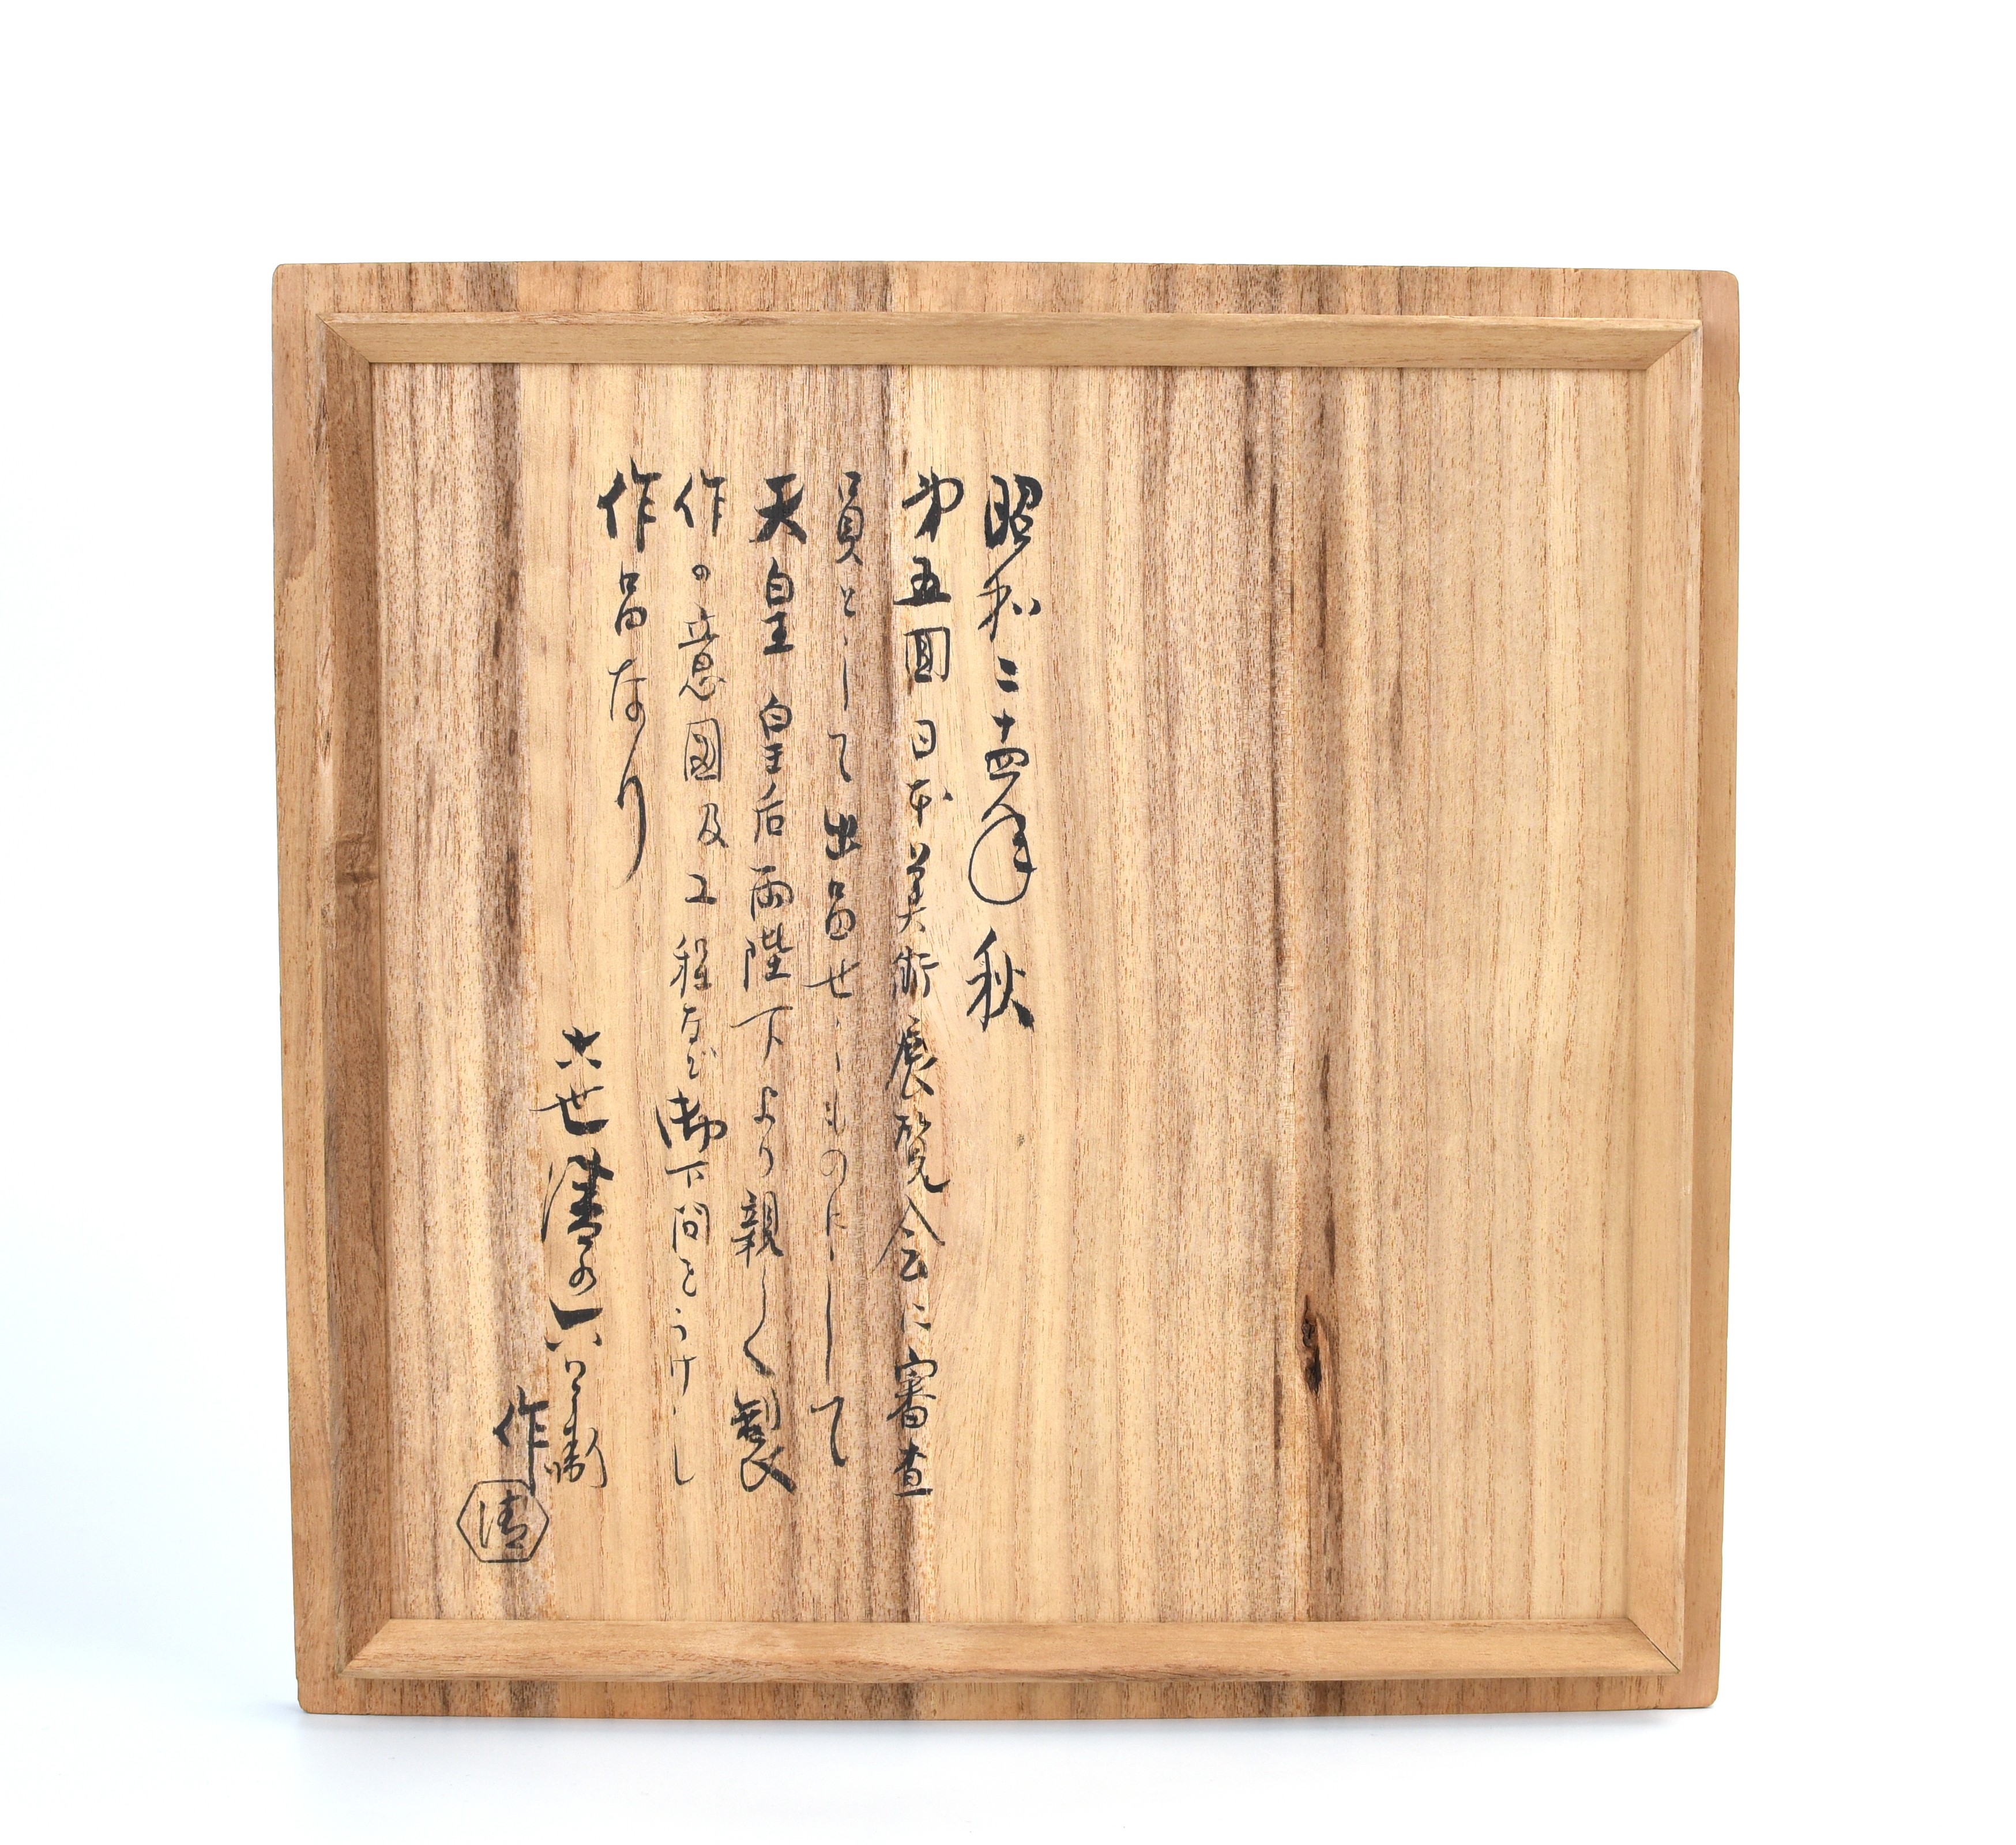 昭和二十四年 秋
第五回日本美術展覧会に審査
員として出品せしものにして
天皇皇后両陛下より親しく製
作の意図及工程など御下問をうけし
作品なり
六世清水六兵衛
作
清